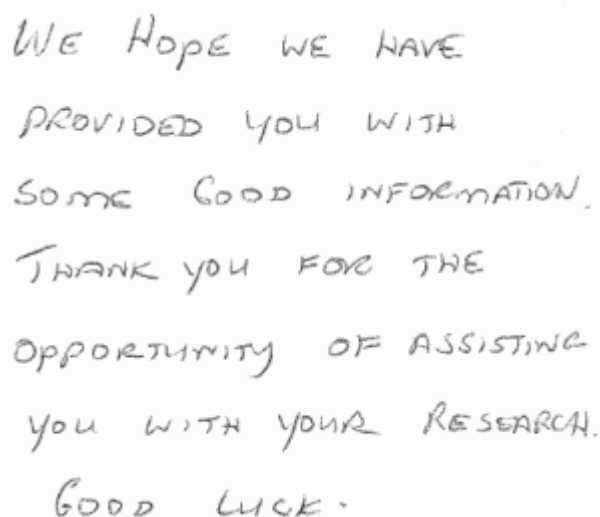 WE HOPE WE HAVE
PROVIDED YOU WITH
SOME GOOD INFORMATION.
THANK YOU FOR THE
OPPORTUNITY OF ASSISTING
YOU WITH YOUR RESEARCH.
GOOD LUCK.